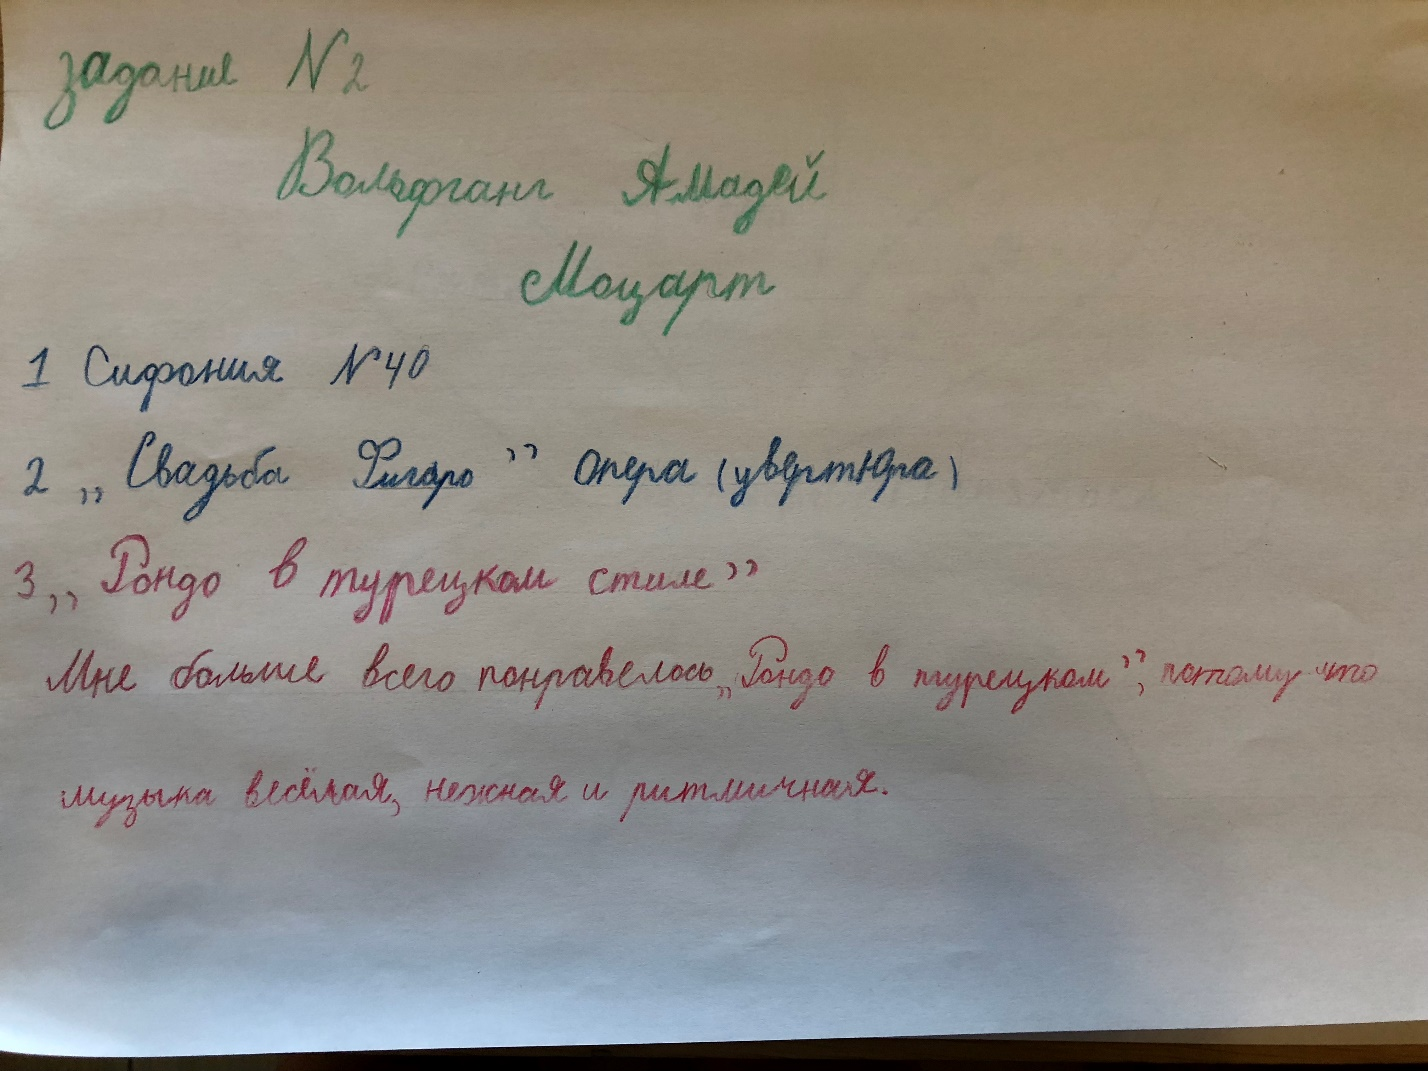 задание N2
Вольфганг Амадей
Моцарт
1 Сифония N40
2 „Свадьба Фигаро” опера (увертюра)
3 „Рондо в турецком стиле”
Мне больше всего понравелось „Рондо в турецком”, потому что
музыка весёлая, нежная и ритмичная.